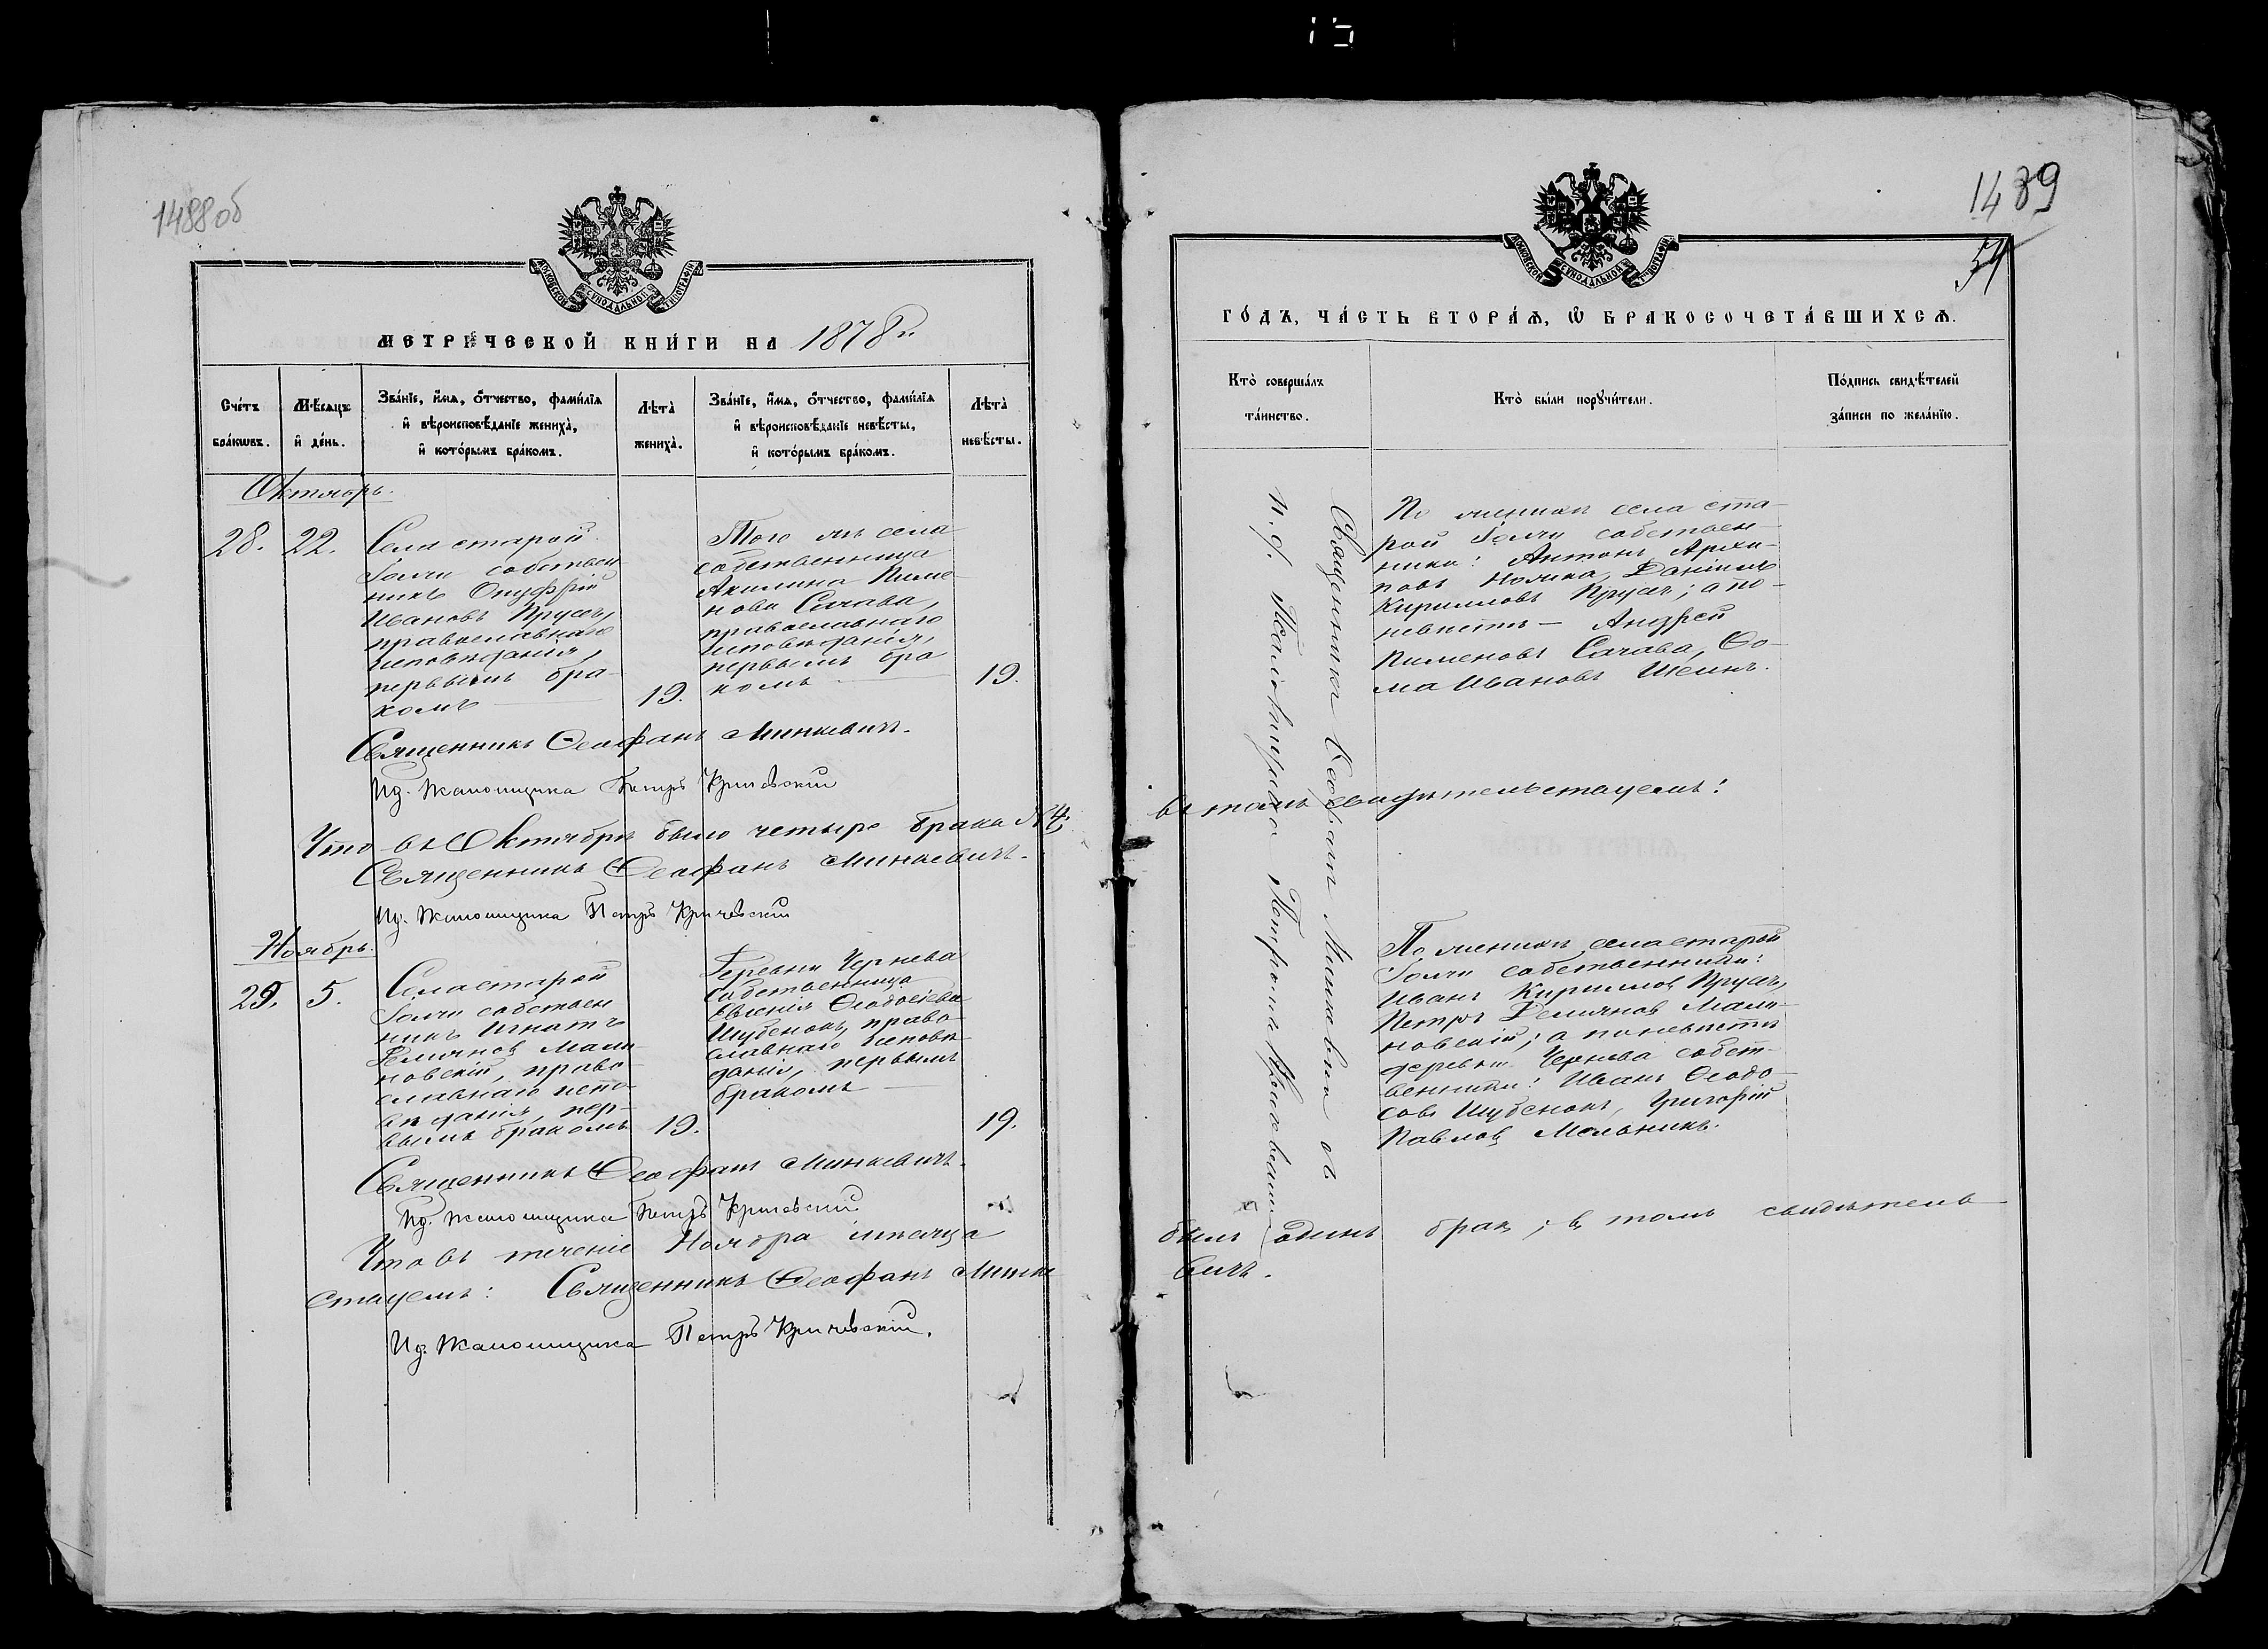 1488об
МОСКОВСКОЙ СѴНОДАЛЬНОЙ ТИПОГРАФІИ
МЕТРИЧЕСКОЙ КНИГИ НА 1878 г.
Счетъ браковъ.
Мѣсяцъ и день.
Званіе, имя, отчество, фамилія и вѣроисповѣданіе жениха, и которымъ бракомъ.
Лѣта жениха.
Званіе, имя, отчество, фамилія и вѣроисповѣданіе невѣсты, и которымъ бракомъ.
Лѣта невѣсты.
Октябрь.
28.
22.
Села старой
Голчи собствен
никъ Онуфрій
Ивановъ Прусъ,
православнаго
исповѣданія,
первымъ бра-
комъ
19.
Того же села
собственница
Акилина Пиме-
нова Сачава,
православнаго
исповѣданія,
первымъ бра
комъ
19.
Священникъ Ѳеофанъ Минкевичъ.
Ид. Псаломщика Петръ Кричевскій
Что въ Октябрѣ было четыре брака №4,
Священникъ Ѳеофанъ Минкевичъ.
Ид. Псаломщика Петръ Кричевскій
Ноябрь.
29.
5.
Села старой
Голчи собствен
никъ Игнатъ
Демяновъ Мали
новскій, право-
славнаго испо-
вѣданія, пер-
вымъ бракомъ
19.
Деревни Чернева
собственница
Евгенія Ѳеодосіева
Шубенокъ, право-
славнаго исповѣ-
данія, первымъ
бракомъ
19.
Священникъ Ѳеофанъ Минкевичъ.
Ид. Псаломщика Петръ Кричевскій
Что въ теченіе Ноября мѣсяца
стауемъ: Священникъ Ѳеофанъ Минке
Ид. Псаломщика Петръ Кричевскій.
1489
МОСКОВСКОЙ СѴНОДАЛЬНОЙ ТИПОГРАФІИ
ГОДЪ, ЧАСТЬ ВТОРАЯ, Ѡ БРАКОСОЧЕТАВШИХСЯ.
Кто совершалъ таинство.
Кто были поручители.
Подпись свидѣтелей записи по желанію.
Священникъ Ѳеофанъ Минкевичъ съ
и. д. Псаломщика Петромъ
По женихѣ села ста-
рой Голчи собствен-
ники: Антонъ Архи-
повъ Даніилъ
Кирилловъ Прусъ; а по-
невѣстѣ — Андрей
Пименовъ Сачава, Ѳо-
ма Ивановъ
въ томъ свидѣтельствуемъ:
По женихѣ села старой
Голчи собственники:
Иванъ Кириллов Прусъ,
Петръ Демянов Мали-
новскій; а по невѣстѣ
деревни Чернева собст-
венники: Иванъ Ѳеодо-
совъ Шубенокъ, Григорій
Павлов Мельникъ.
былъ одинъ брак; въ томъ свидѣтель-
вичъ.